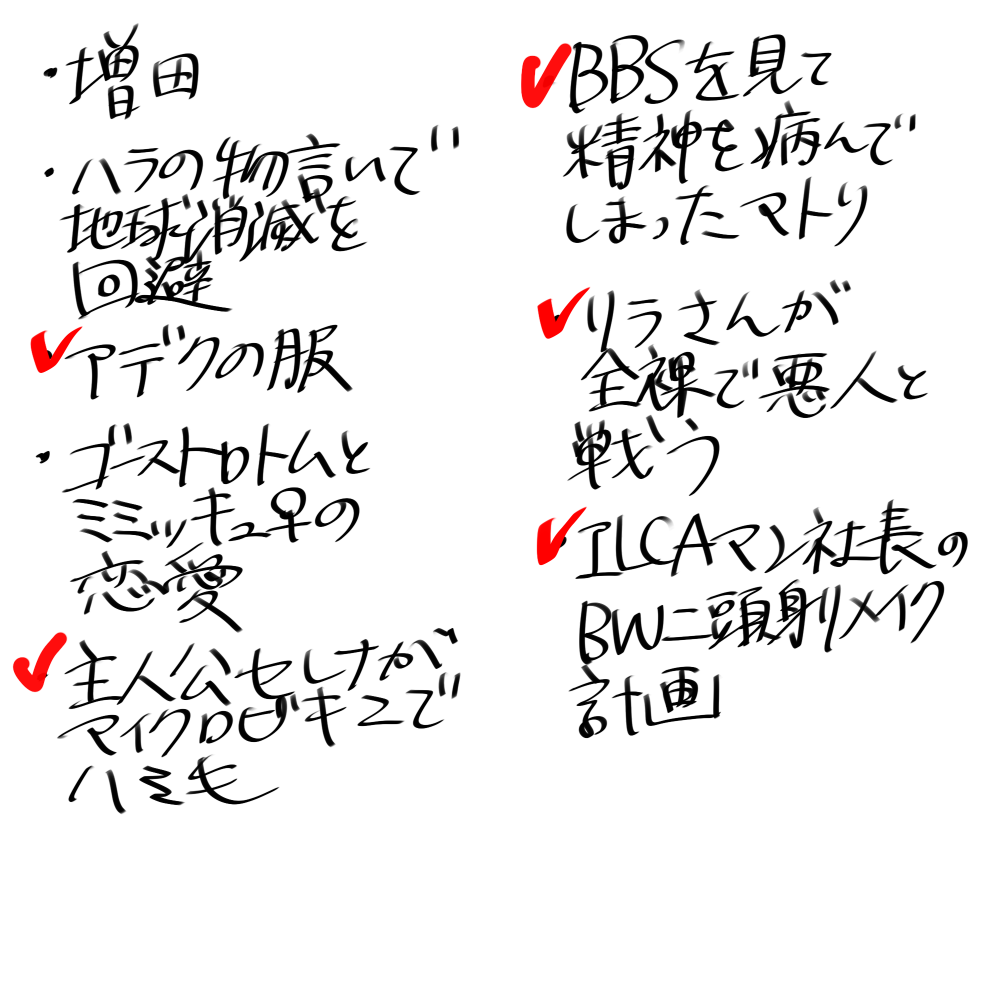 ・増田
・ハラの物言いで
地球消滅を
回避
アデクの服
・ゴーストロトムと
ミミッキュ♀の
恋愛
主人公セレナが
マイクロビキニで
ハミ毛
BBSを見て
精神を病んで
しまったマトリ
リラさんが
全裸で悪人と
戦う
ILCAマン社長の
BW二頭身リメイク
計画